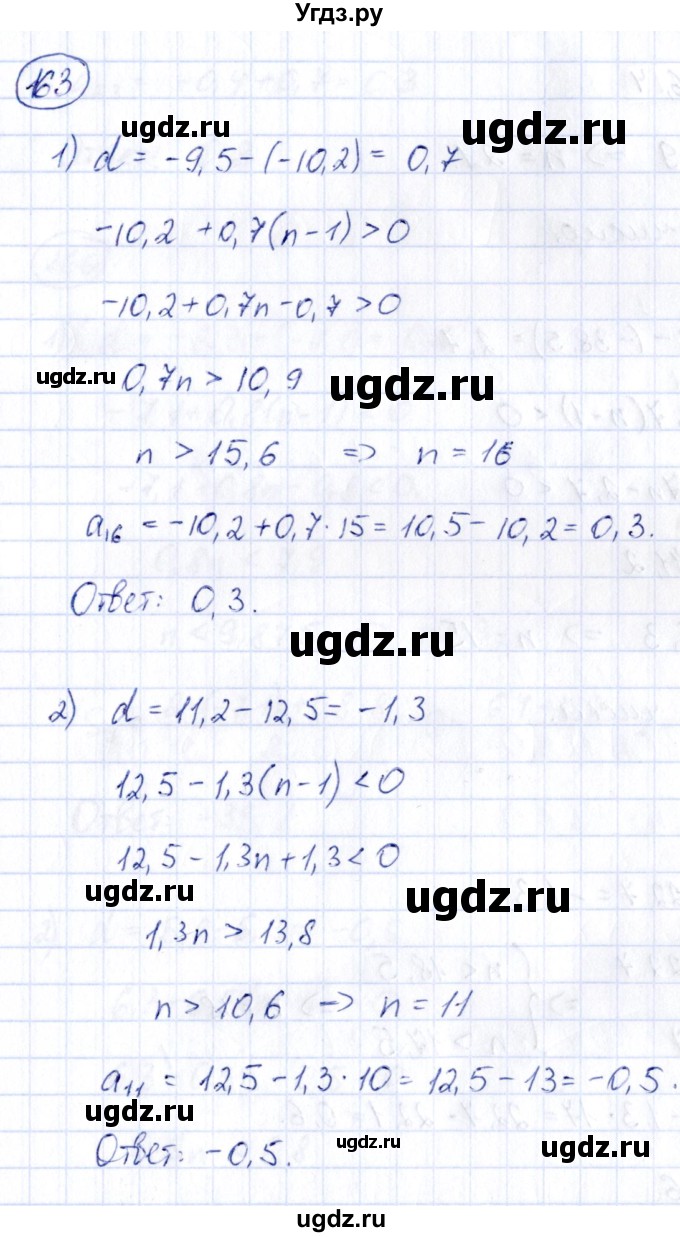 Угдз.ру
163
ugdz.ru ugdz.ru
1) d = -9,5-(-10,2) = 0,7
-10,2 +0,7(n-1) > 0
-10,2+0,7n-0,7>0
ugdz.ru 0,7n > 10,9 ugdz.ru
n > 15,6 => n = 16
a₁₆ = -10,2+0,7·15 = 10,5-10,2 = 0,3.
Ответ: 0,3.
ugdz.ru
2) d = 11,2-12,5 = -1,3
12,5-1,3(n-1)<0
12,5-1,3n+1,3<0
ugdz.ru ugdz.ru
1,3n > 13,8
n > 10,6 => n = 11
a₁₁ = 12,5-1,3·10 = 12,5-13 = -0,5.
ugdz.ru
Ответ: -0,5. ugdz.ru ugdz.ru
ugdz.ru